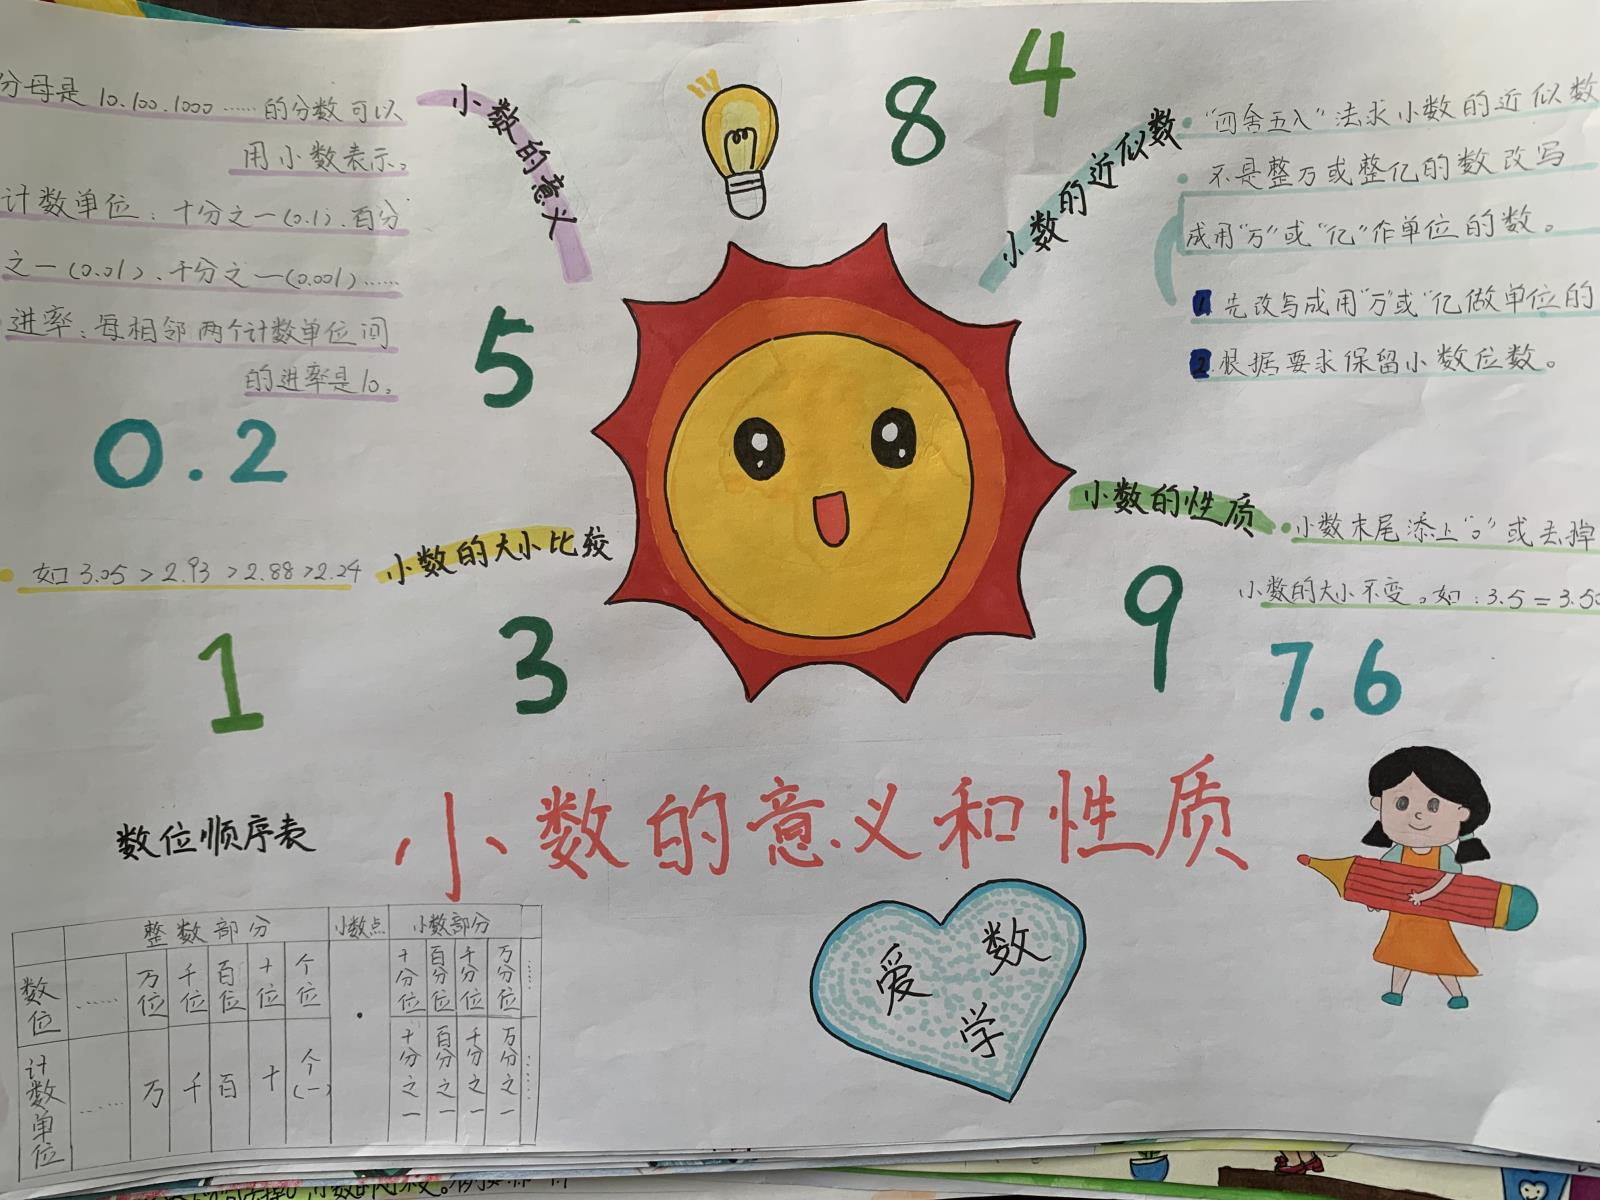 分母是10.100.1000……的分数可以
用小数表示。
计数单位：十分之一(0.1)、百分
之一(0.01)、千分之一(0.001)……
进率：每相邻两个计数单位间
的进率是10。
小数的意义
8
4
小数的近似数
“四舍五入”法求小数的近似数
不是整万或整亿的数改写
成用“万”或“亿”作单位的数。
1.先改写成用“万”或“亿做单位的
2.根据要求保留小数位数。
5
0.2
小数的大小比较
如3.05>2.93>2.88>2.24
小数的性质
小数末尾添上“0”或去掉
小数的大小不变。如:3.5=3.50
1
3
9
7.6
小数的意义和性质
数位顺序表
整数部分 小数点 小数部分
数位 …… 万位 千位 百位 十位 个位 . 十分位 百分位 千分位 万分位 ……
计数单位 …… 万 千 百 十 个(一) 十分之一 百分之一 千分之一 万分之一 ……
爱数学